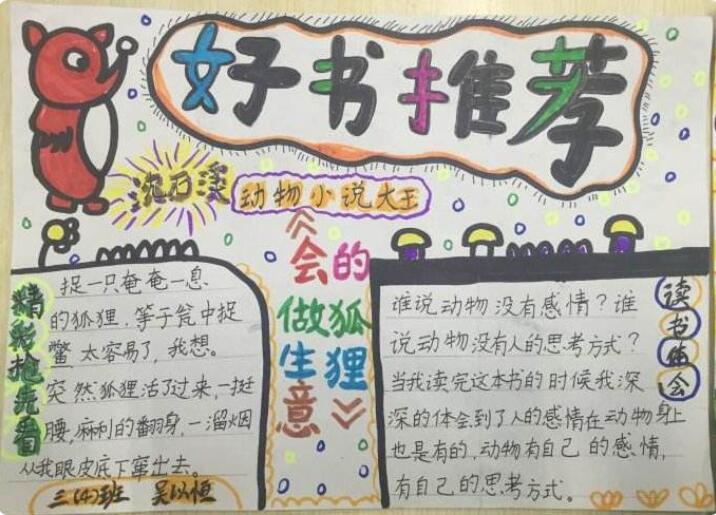 好书推荐
沈石溪
动物小说大王
《会做生意
的狐狸》
精彩抢先看
捉一只奄奄一息
的狐狸，等于瓮中捉
鳖，太容易了，我想。
突然狐狸活了过来，一挺
腰，麻利的翻身，一溜烟
从我眼皮底下窜出去。
三(4)班 吴以恒
读书体会
谁说动物没有感情？谁
说动物没有人的思考方式？
当我读完这本书的时候我深
深的体会到了人的感情在动物身上
也是有的，动物有自己的感情，
有自己的思考方式。